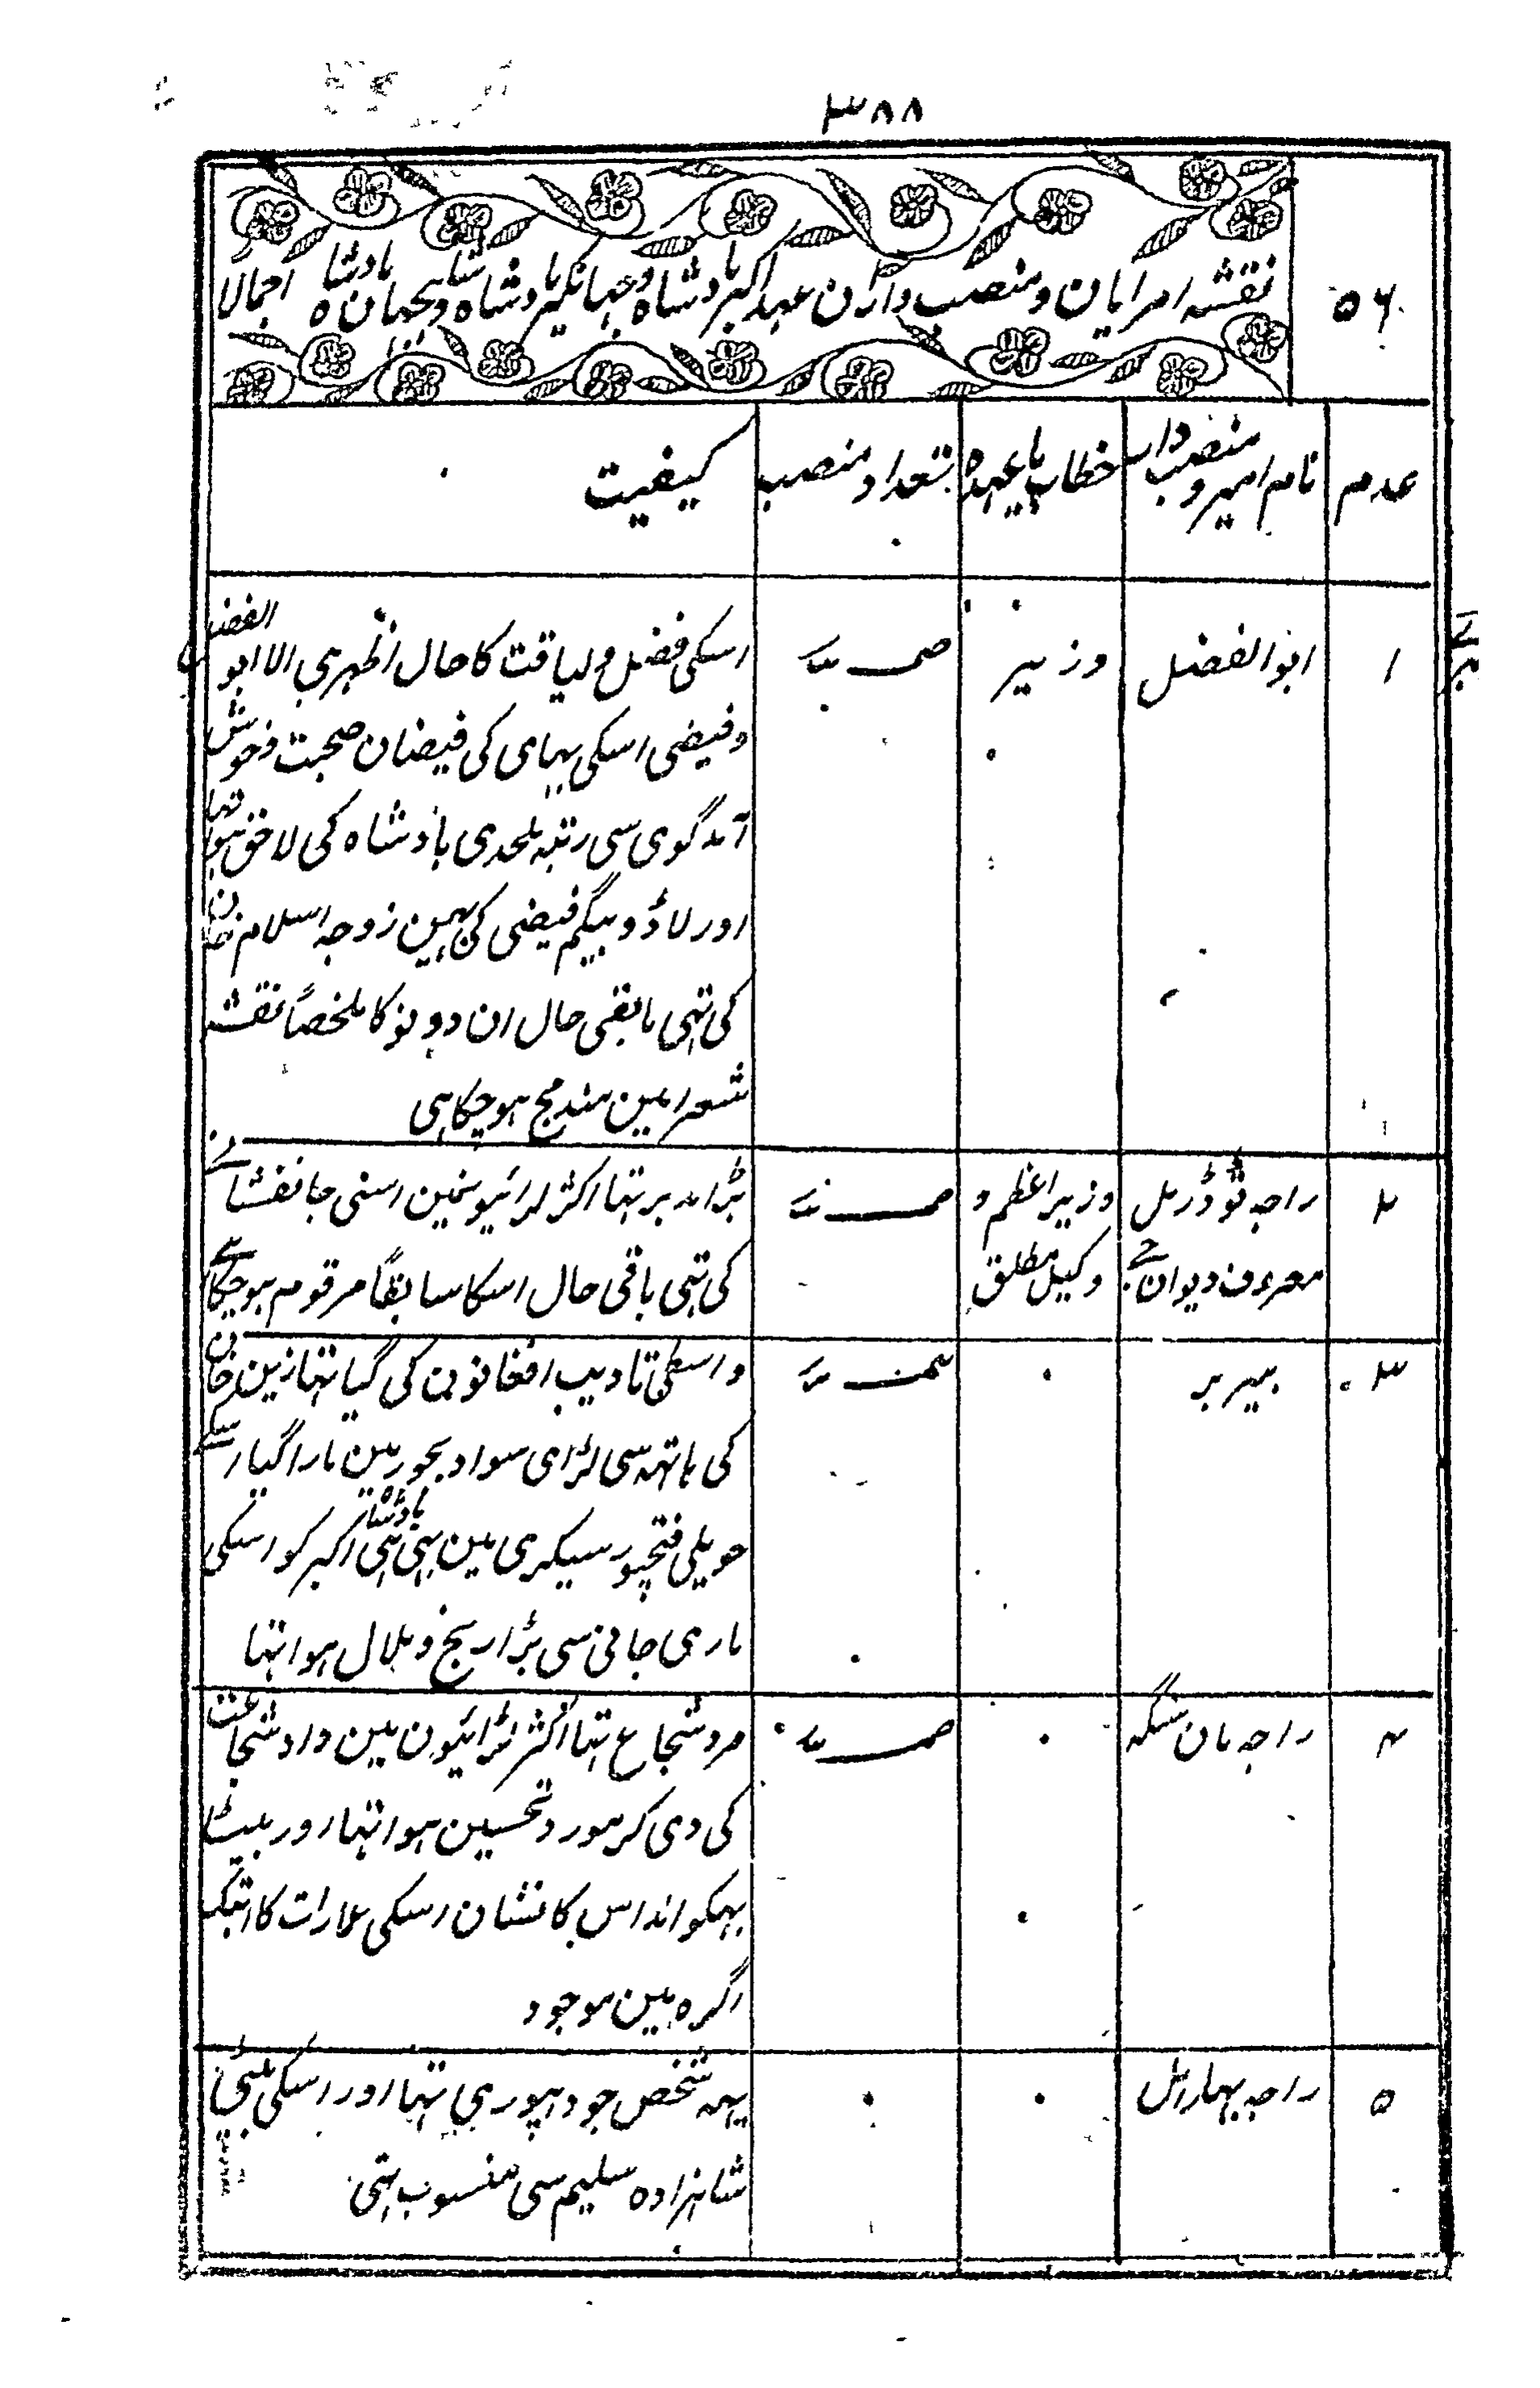 ۳۸۸
۵۶
نقشہ امرایان و منصب داران عہد اکبر بادشاہ و جہانگیر بادشاہ و شاہجہان بادشاہ اجمالاً
عدم
نام امیر و منصب دار
خطاب یا عہدہ
تعداد منصب
کیفیت
۱
ابو الفضل
وزیر
اسکی فضل و لیاقت کا حال اظہر ہی الا ابو الفضل
و فیضی اسکی بہای کی فیضان صحبت و خوش
آمد گوی سی رتبہ ملحدی بادشاہ کی لاحق ہوا تہا
اور لاڈو بیگم فیضی کی بہین زوجہ اسلام خان
کی تہی مابقی حال ان دونو کا ملخصاً نقشہ
شعرا مین مندمج ہو چکا ہی
۲
راجہ ٹوڈرمل
معروف دیوان جی
وزیر اعظم و
وکیل مطلق
بڑا مدبر تہا اکثر لڑائیونمین اسنی جانفشانے
کی تہی باقی حال اسکا سابقاً مرقوم ہو چکا ہے
۳
بیربر
واسطی تادیب افغانون کی گیا تہا زین خان
کی ہاتہہ سی لڑای سواد بجور مین مارا گیا اسکے
حویلی فتحپور سیکری مین بہی ہی اکبر بادشاہ کو اسکی
ماری جانی سی بڑا رنج و ملال ہوا تہا
۴
راجہ مان سنگہ
مرد شجاع تہا اکثر لڑائیون مین داد شجاعت
کی دی کر مورد تحسین ہوا تہا اور بیٹا
بہکوانداس کا نشان اسکی عمارات کا ابتک
اگرہ مین موجود
۵
راجہ بہارامل
یہہ شخص جودہپوری تہا اور اسکی بیٹی
شاہزادہ سلیم سی منسوب تہی